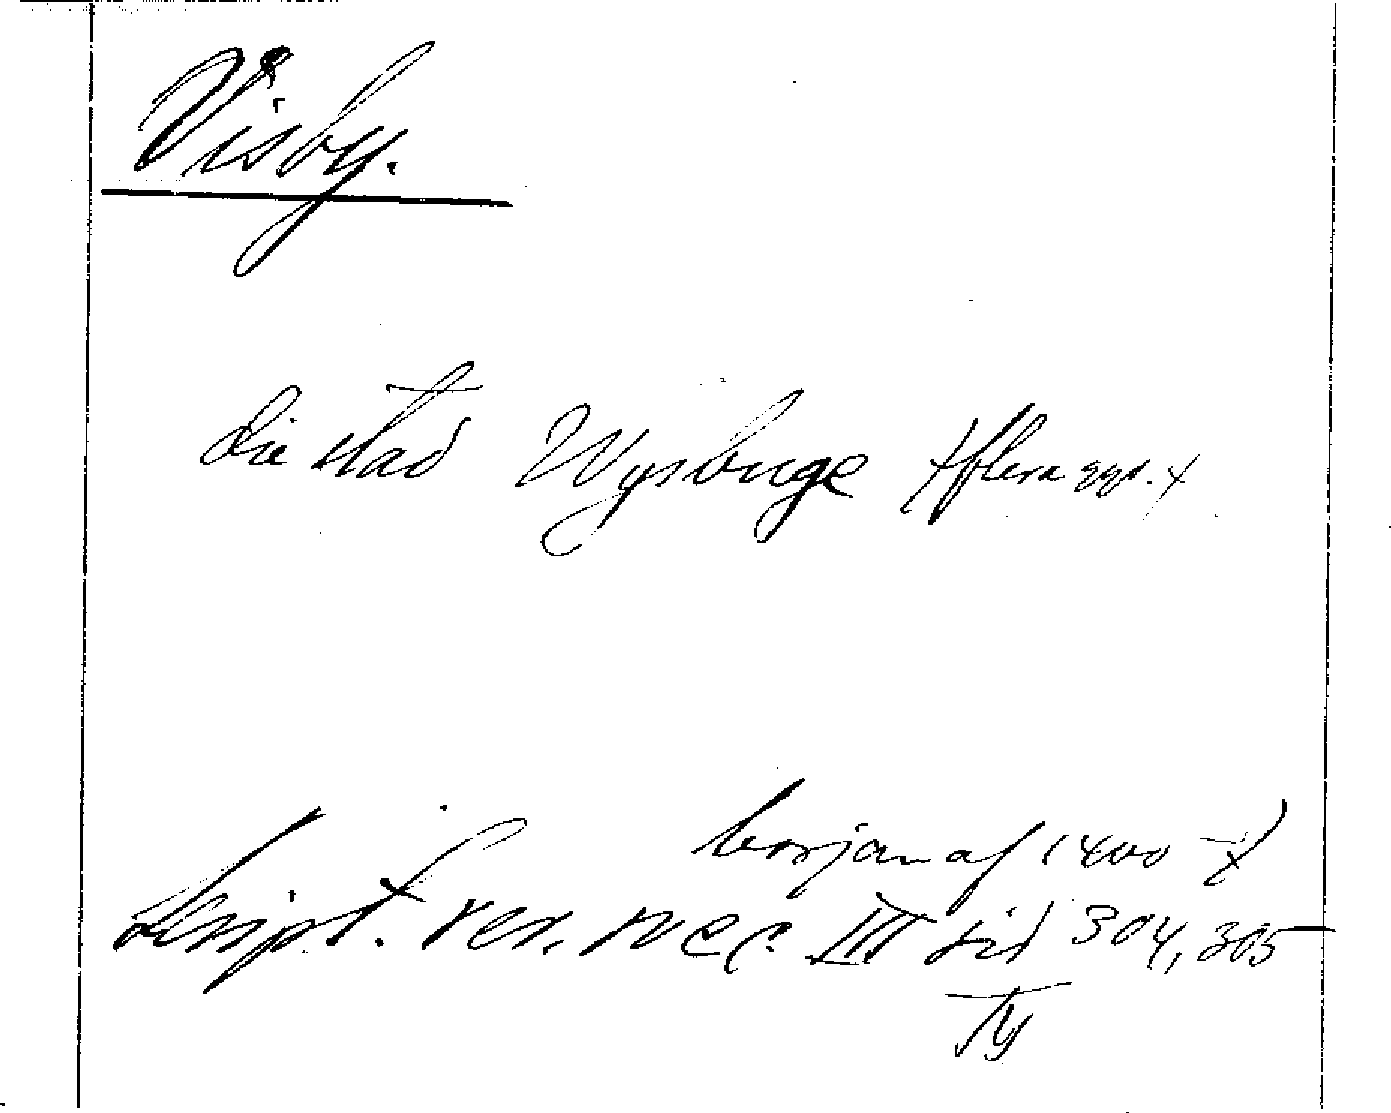 Visby.
die stad Wysbuge + flera ggr. +
början af 1400-t
Script. rer. svec. III sid 304, 305
Ty